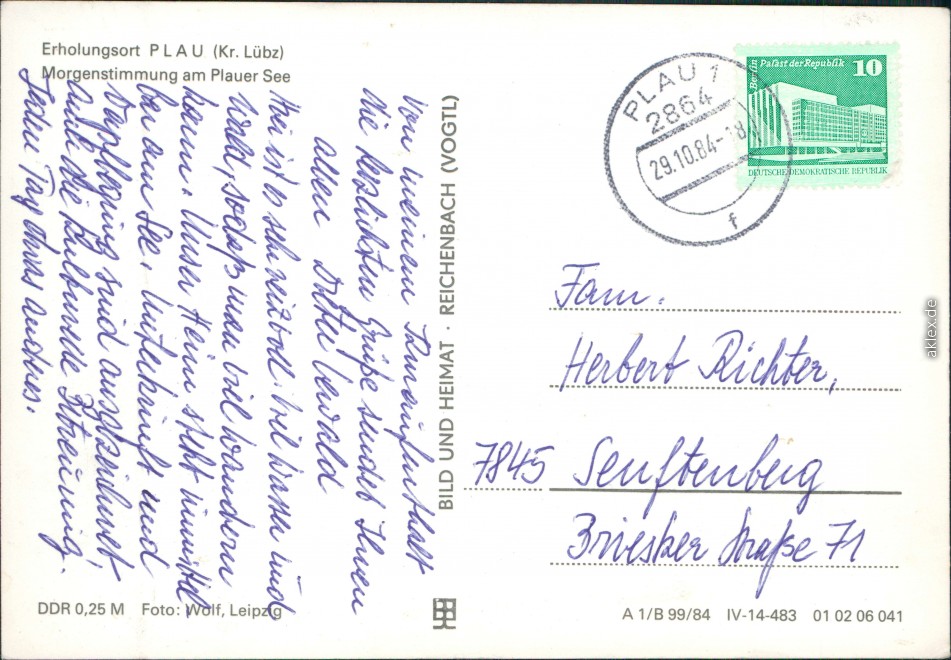 Erholungsort PLAU (Kr. Lübz)
Morgenstimmung am Plauer See
Von meinem Kuraufenthalt
die herzlichsten Grüße sendet Ihnen
allen
Hier ist es sehr reizvoll. Viel Wasser und
Wald, sodaß man viel wandern
kann. Unser Heim steht unmittel
bar am See. Unterkunft und
Verpflegung sind ausgezeichnet
auch die kulturelle Betreuung.
Jeden Tag etwas anderes.
BILD UND HEIMAT · REICHENBACH (VOGTL)
PLAU 1
2864
29.10.84-18
f
Berlin Palast der Republik 10
DEUTSCHE DEMOKRATISCHE REPUBLIK
Fam.
Herbert Richter,
7845 Senftenberg
Briesker Straße 71
DDR 0,25 M Foto: Wolf, Leipzig
A 1/B 99/84 IV-14-483 01 02 06 041
aklex.de